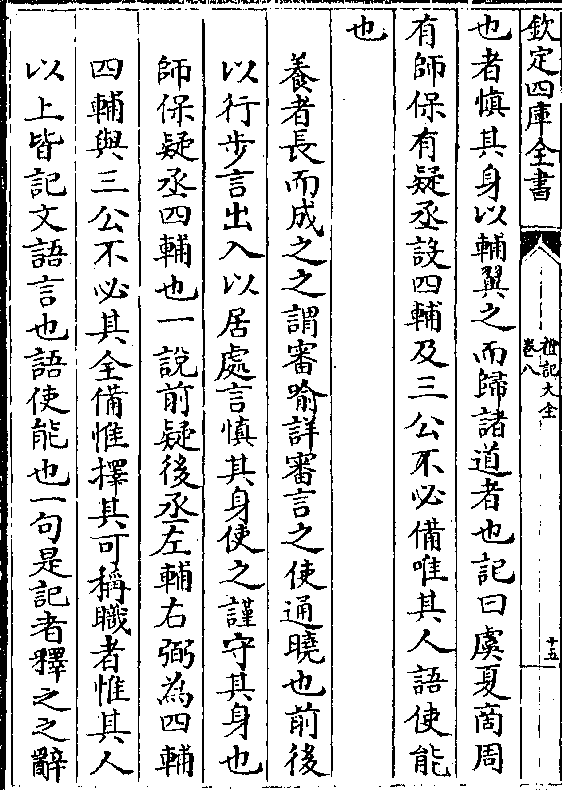 欽定四庫全書
禮記大全
卷八
十五
也者慎其身以輔翼之而歸諸道者也記曰虞夏商周
有師保有疑丞設四輔及三公不必備唯其人語使能
也
養者長而成之之謂審喻詳審言之使通曉也前後
以行步言出入以居處言慎其身使之謹守其身也
師保疑丞四輔也一說前疑後丞左輔右弼為四輔
四輔與三公不必其全備惟擇其可稱職者惟其人
以上皆記文語言也語使能也一句是記者釋之之辭